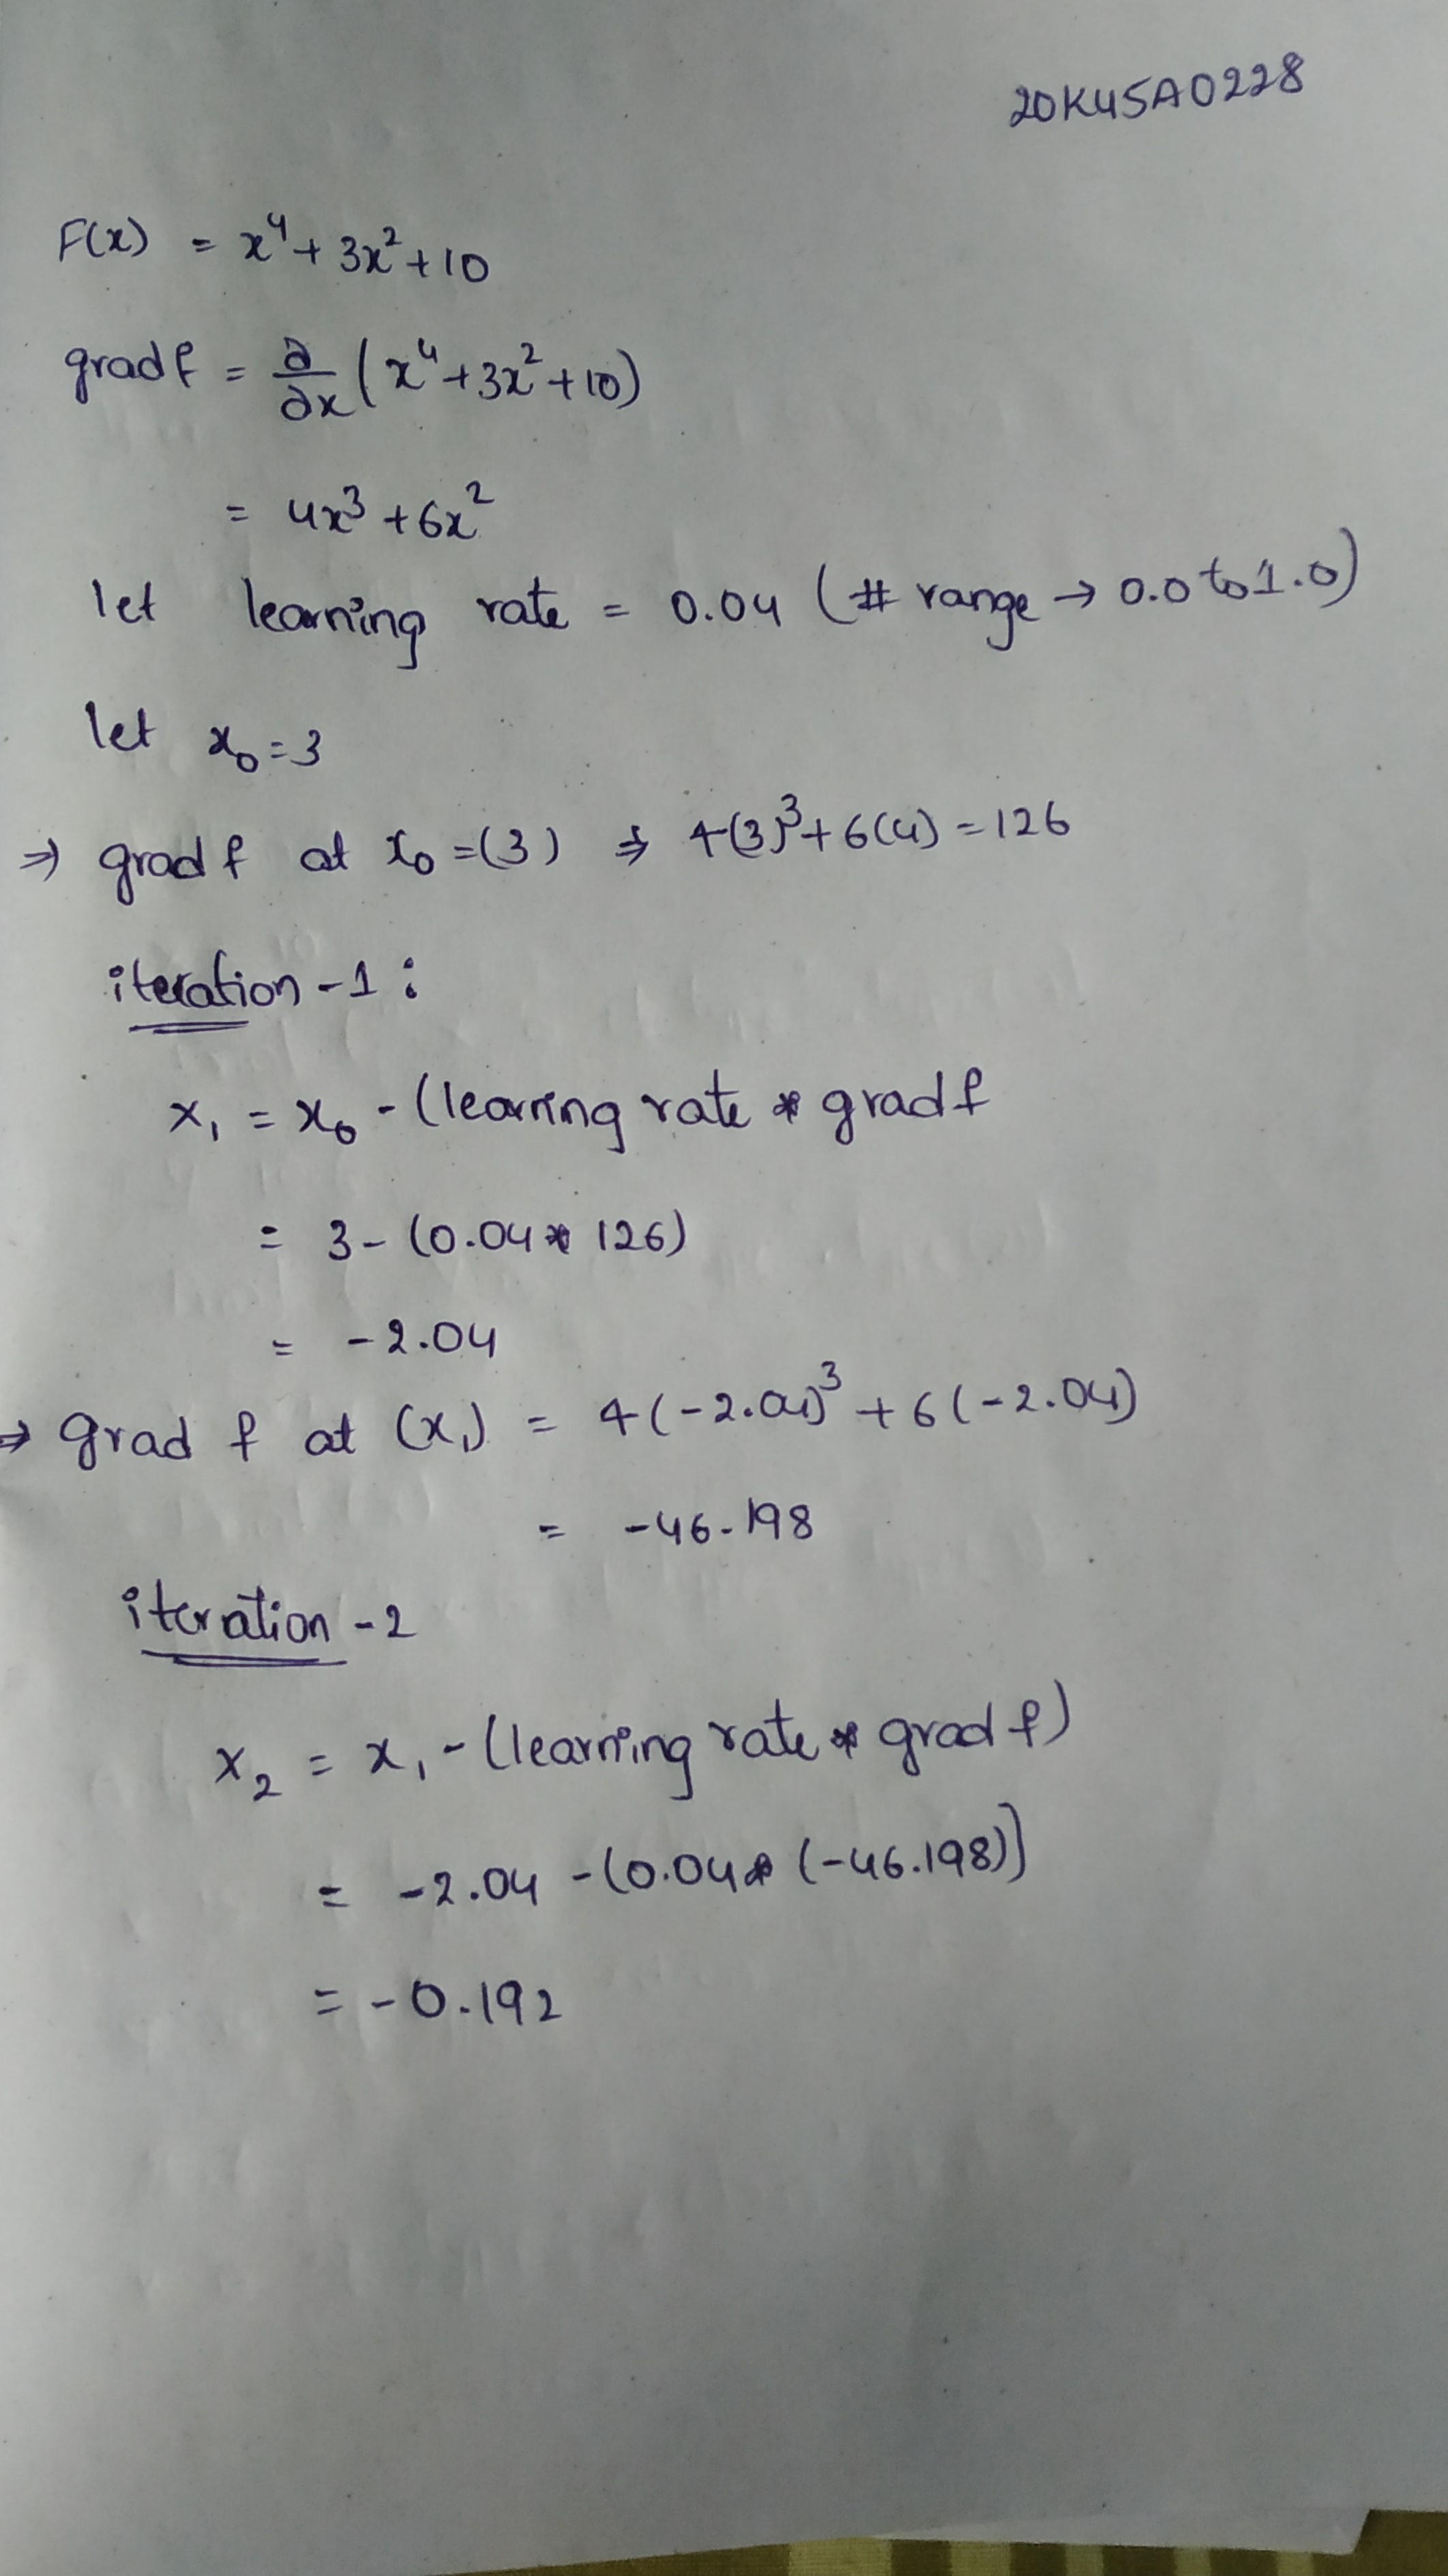 20K45A0228
F(x) = x⁴ + 3x² + 10
grad f = ∂/∂x (x⁴ + 3x² + 10)
= 4x³ + 6x²
let learning rate = 0.04 (# range → 0.0 to 1.0)
let x₀ = 3
⇒ grad f at x₀ = (3) ⇒ 4(3)³ + 6(4) = 126
iteration - 1 :
x₁ = x₀ - (learning rate * grad f
= 3 - (0.04 * 126)
= -2.04
⇒ grad f at (x₁) = 4(-2.04)³ + 6(-2.04)
= -46.198
iteration - 2
x₂ = x₁ - (learning rate * grad f)
= -2.04 - (0.04 * (-46.198))
= -0.192